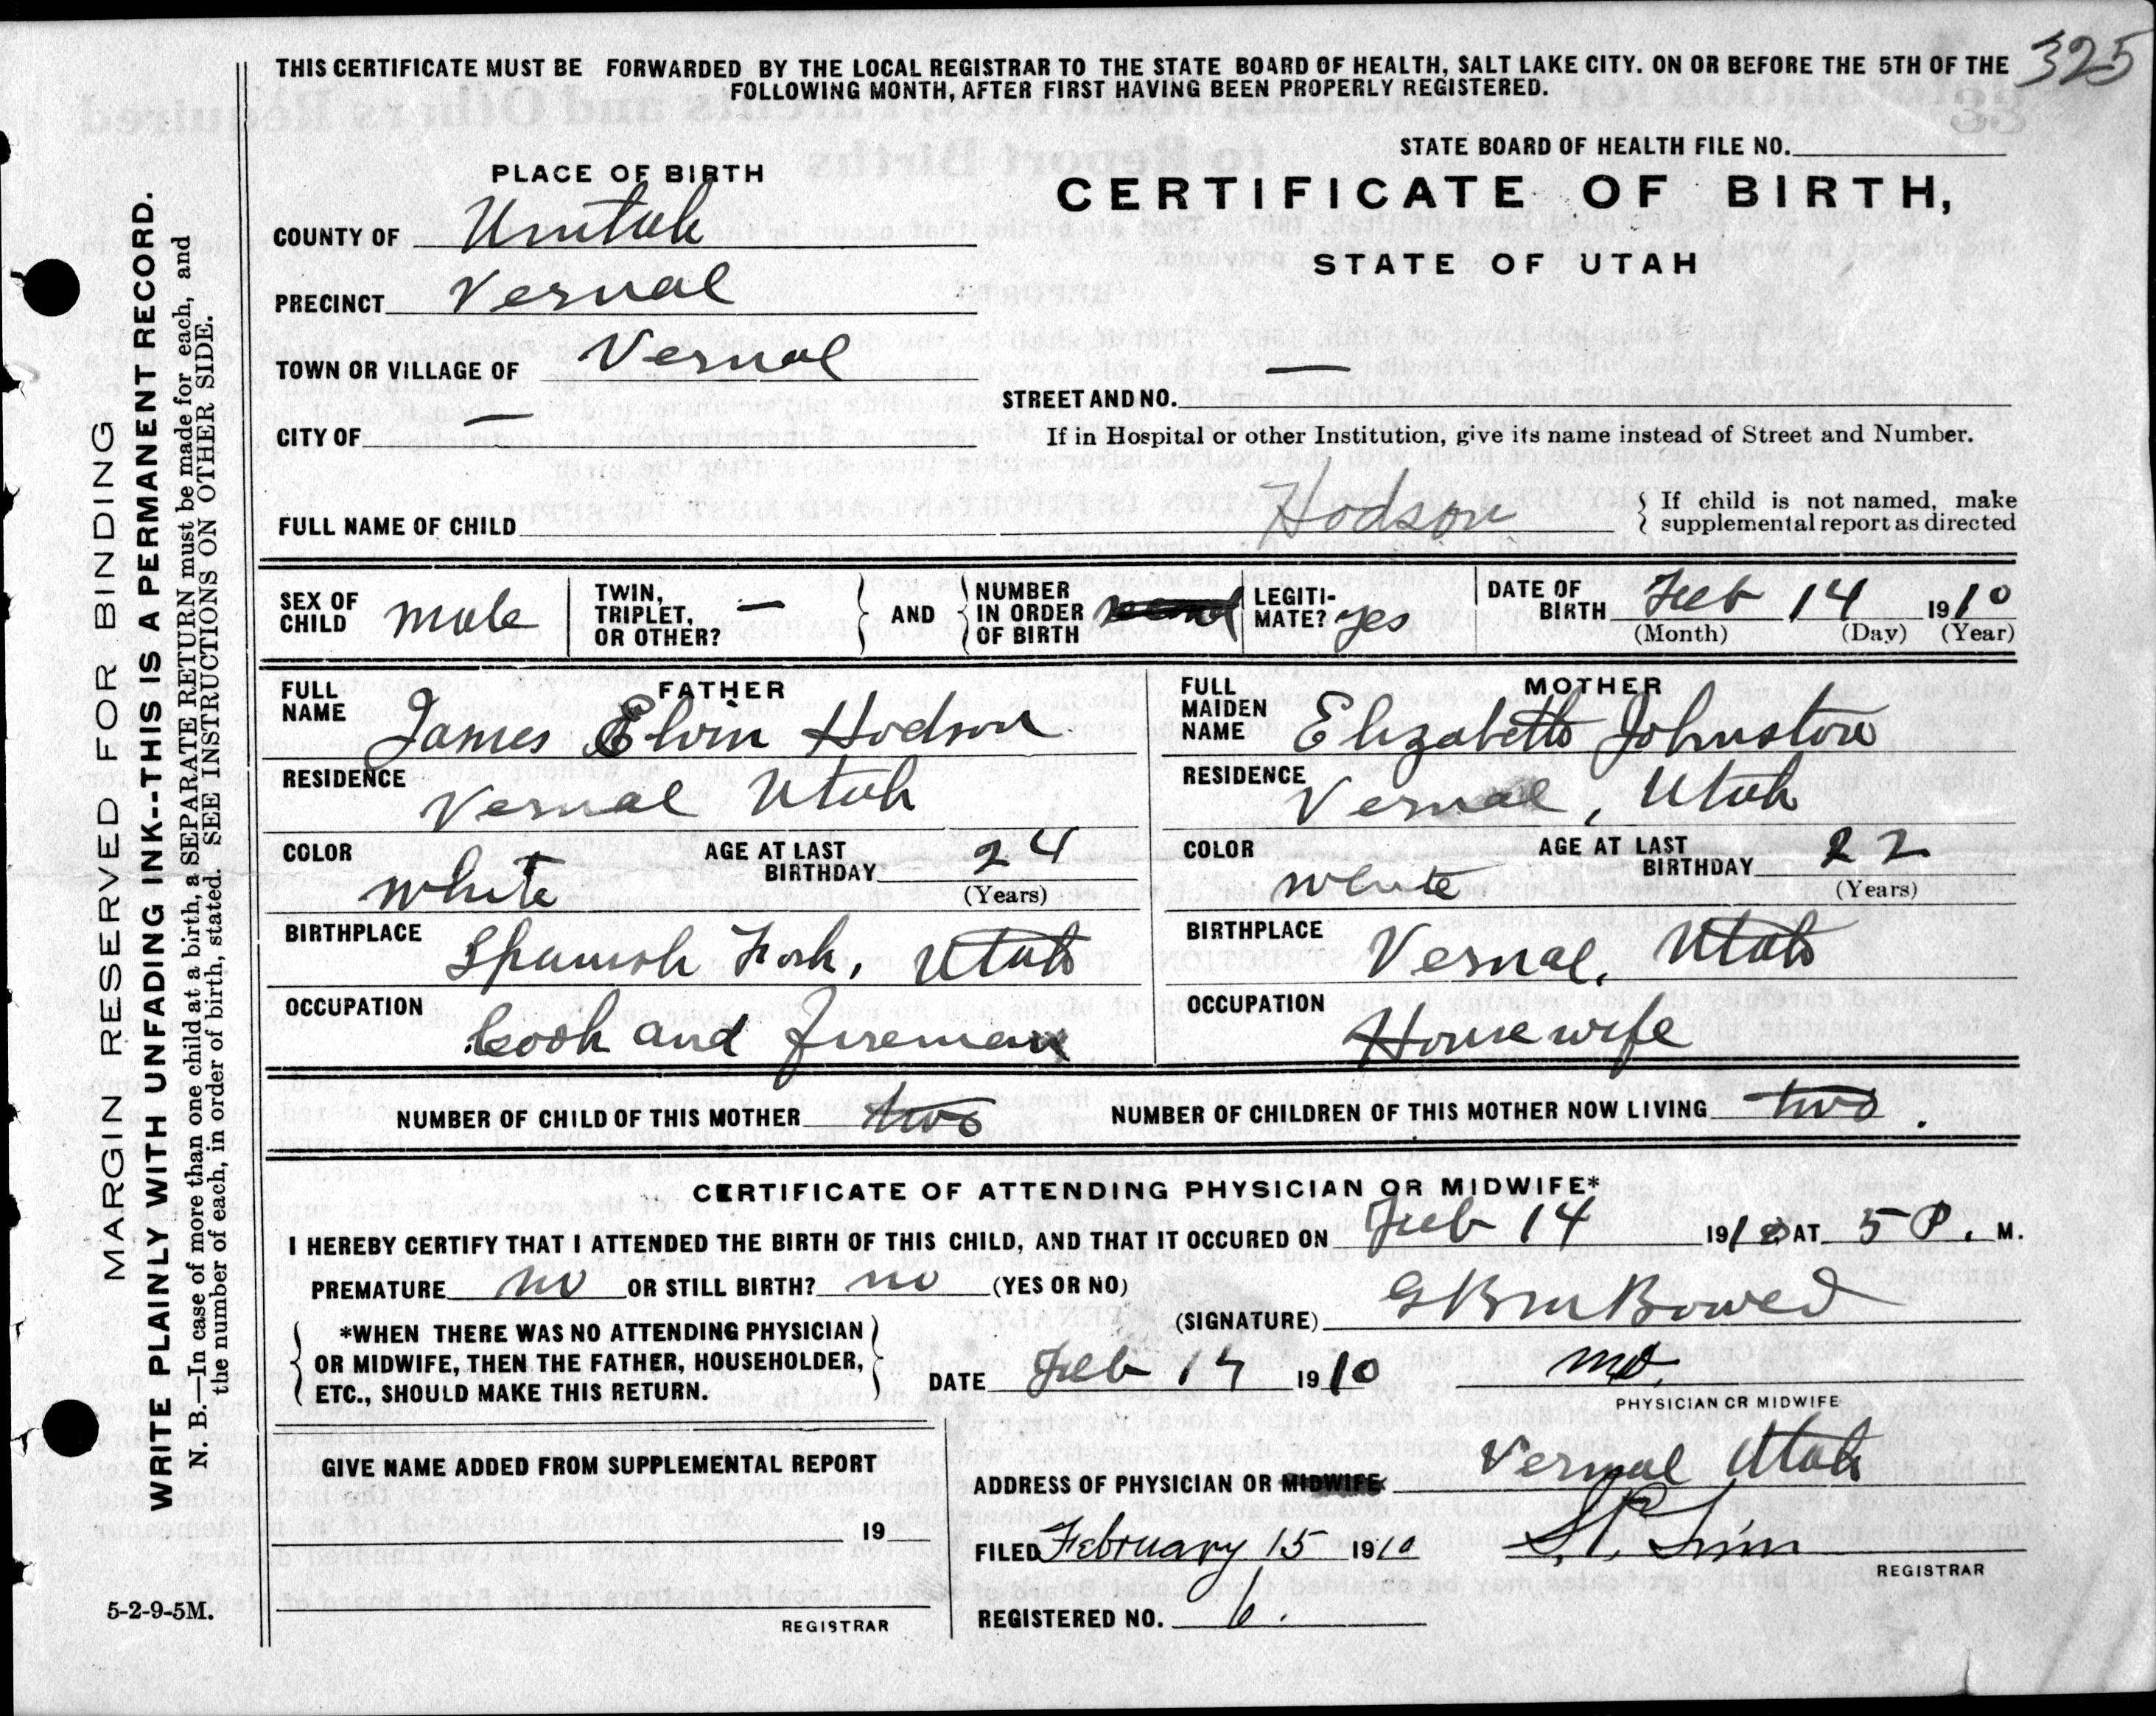 325
THIS CERTIFICATE MUST BE FORWARDED BY THE LOCAL REGISTRAR TO THE STATE BOARD OF HEALTH, SALT LAKE CITY. ON OR BEFORE THE 5TH OF THE
FOLLOWING MONTH, AFTER FIRST HAVING BEEN PROPERLY REGISTERED.
STATE BOARD OF HEALTH FILE NO.
PLACE OF BIRTH
CERTIFICATE OF BIRTH,
STATE OF UTAH
COUNTY OF Uintah
PRECINCT Vernal
TOWN OR VILLAGE OF Vernal
STREET AND NO. —
CITY OF —
If in Hospital or other Institution, give its name instead of Street and Number.
FULL NAME OF CHILD Hodson
{ If child is not named, make
supplemental report as directed
SEX OF CHILD male
TWIN, TRIPLET, OR OTHER? —
} AND {
NUMBER IN ORDER OF BIRTH
LEGITI-MATE? yes
DATE OF BIRTH Feb 14 1910
(Month) (Day) (Year)
FATHER
FULL NAME James Elvin Hodson
RESIDENCE Vernal Utah
COLOR White AGE AT LAST BIRTHDAY 24
(Years)
BIRTHPLACE Spanish Fork, Utah
OCCUPATION Cook and fireman
MOTHER
FULL MAIDEN NAME Elizabeth Johnston
RESIDENCE Vernal, Utah
COLOR White AGE AT LAST BIRTHDAY 22
(Years)
BIRTHPLACE Vernal, Utah
OCCUPATION Housewife
NUMBER OF CHILD OF THIS MOTHER two NUMBER OF CHILDREN OF THIS MOTHER NOW LIVING two.
CERTIFICATE OF ATTENDING PHYSICIAN OR MIDWIFE*
I HEREBY CERTIFY THAT I ATTENDED THE BIRTH OF THIS CHILD, AND THAT IT OCCURED ON Feb 14 1910 AT 5 P. M.
PREMATURE no OR STILL BIRTH? no (YES OR NO)
(SIGNATURE)
{ *WHEN THERE WAS NO ATTENDING PHYSICIAN
OR MIDWIFE, THEN THE FATHER, HOUSEHOLDER,
ETC., SHOULD MAKE THIS RETURN. }
DATE Feb 1910
MD.
PHYSICIAN OR MIDWIFE
GIVE NAME ADDED FROM SUPPLEMENTAL REPORT
19
REGISTRAR
ADDRESS OF PHYSICIAN OR MIDWIFE Vernal Utah
FILED February 15 1910
REGISTRAR
REGISTERED NO. 6.
5-2-9-5M.
MARGIN RESERVED FOR BINDING
WRITE PLAINLY WITH UNFADING INK--THIS IS A PERMANENT RECORD.
N. B.—In case of more than one child at a birth, a SEPARATE RETURN must be made for each, and
the number of each, in order of birth, stated. SEE INSTRUCTIONS ON OTHER SIDE.